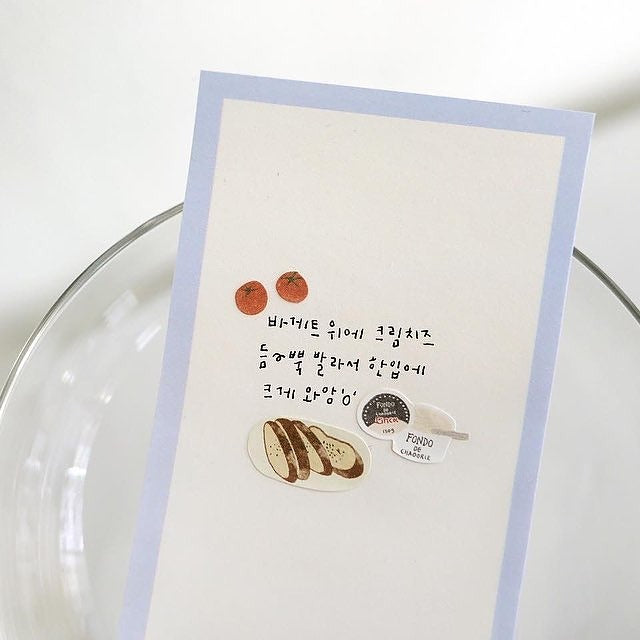 바게트 위에 크림치즈
듬~뿍 발라서 한입에
크게 와앙'o'
FONDO
DE
CHADORIE
150g
FONDO
DE
CHADORIE